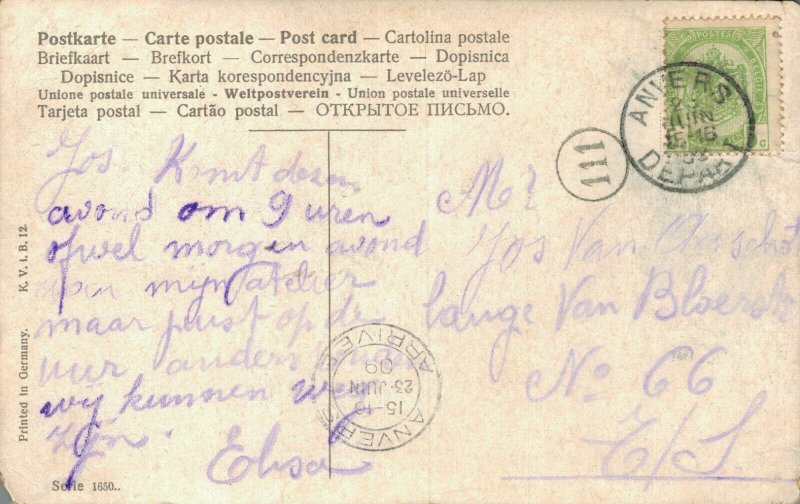 Postkarte — Carte postale — Post card — Cartolina postale
Briefkaart — Brefkort — Correspondenzkarte — Dopisnica
Dopisnice — Karta korespondencyjna — Levelezö-Lap
Unione postale universale - Weltpostverein - Union postale universelle
Tarjeta postal — Cartão postal — ОТКРЫТОЕ ПИСЬМО.
POSTES
ANVERS
23
JUIN
DEPART
111
Jos. Komt dezen
avond om 9 uren
ofwel morgen avond
aan mijn atelier
maar juist op de
uur anders
wij kunnen weg
zijn. Elisa
Mr
Jos Van
lange Van
No 66
E/S.
ANVERS
15-16
23 JUIN
09
ARRIVEE
Printed in Germany. K. V. i. B. 12.
Serie 1650..